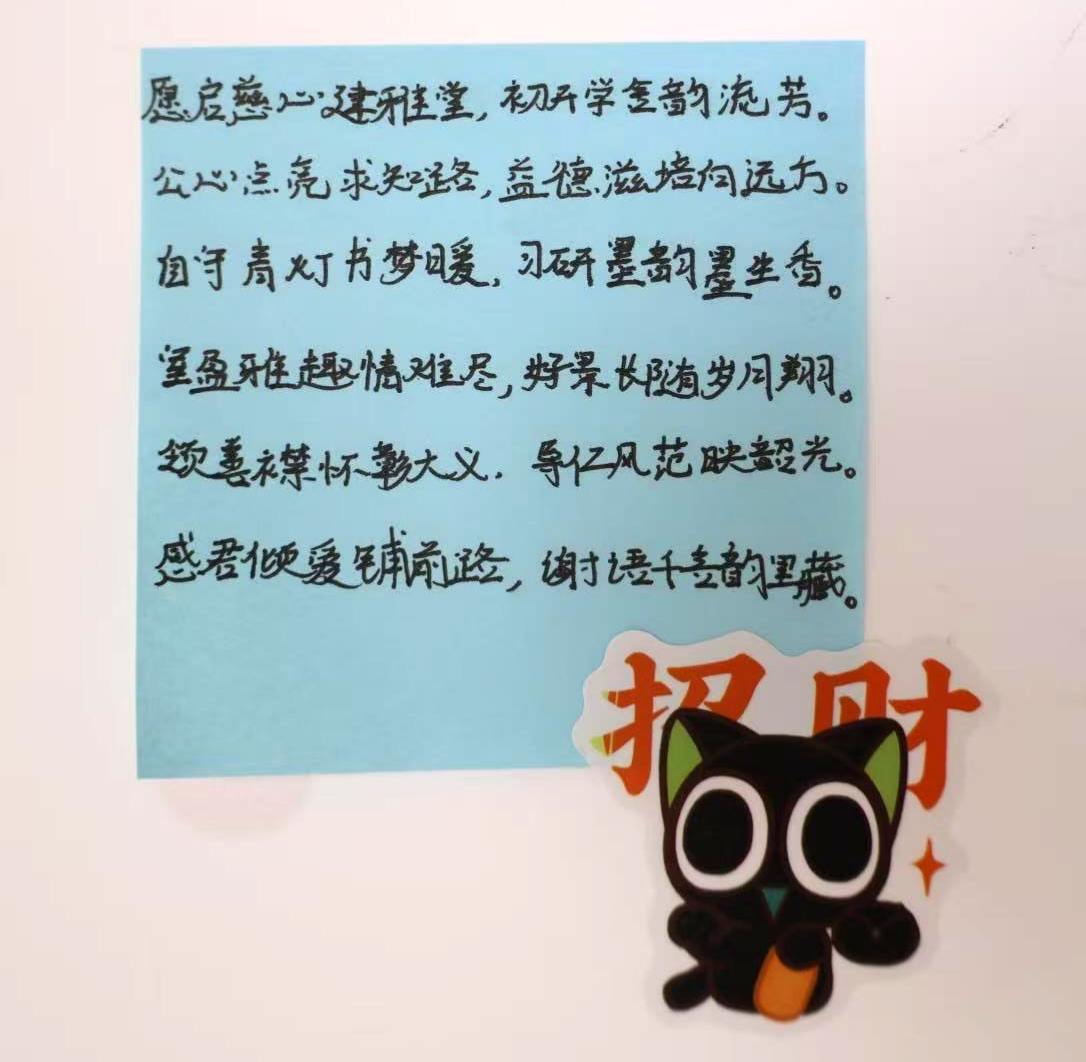 愿启慈心建雅堂,初开学舍韵流芳。
公心点亮求知路,益德滋培向远方。
自守青灯书梦暖,习研墨韵墨生香。
室盈雅趣情难尽,好景长随岁月翔。
领善襟怀彰大义.导仁风范映韶光。
感君倾爱铺前路,谢语千言韵里藏。
招财